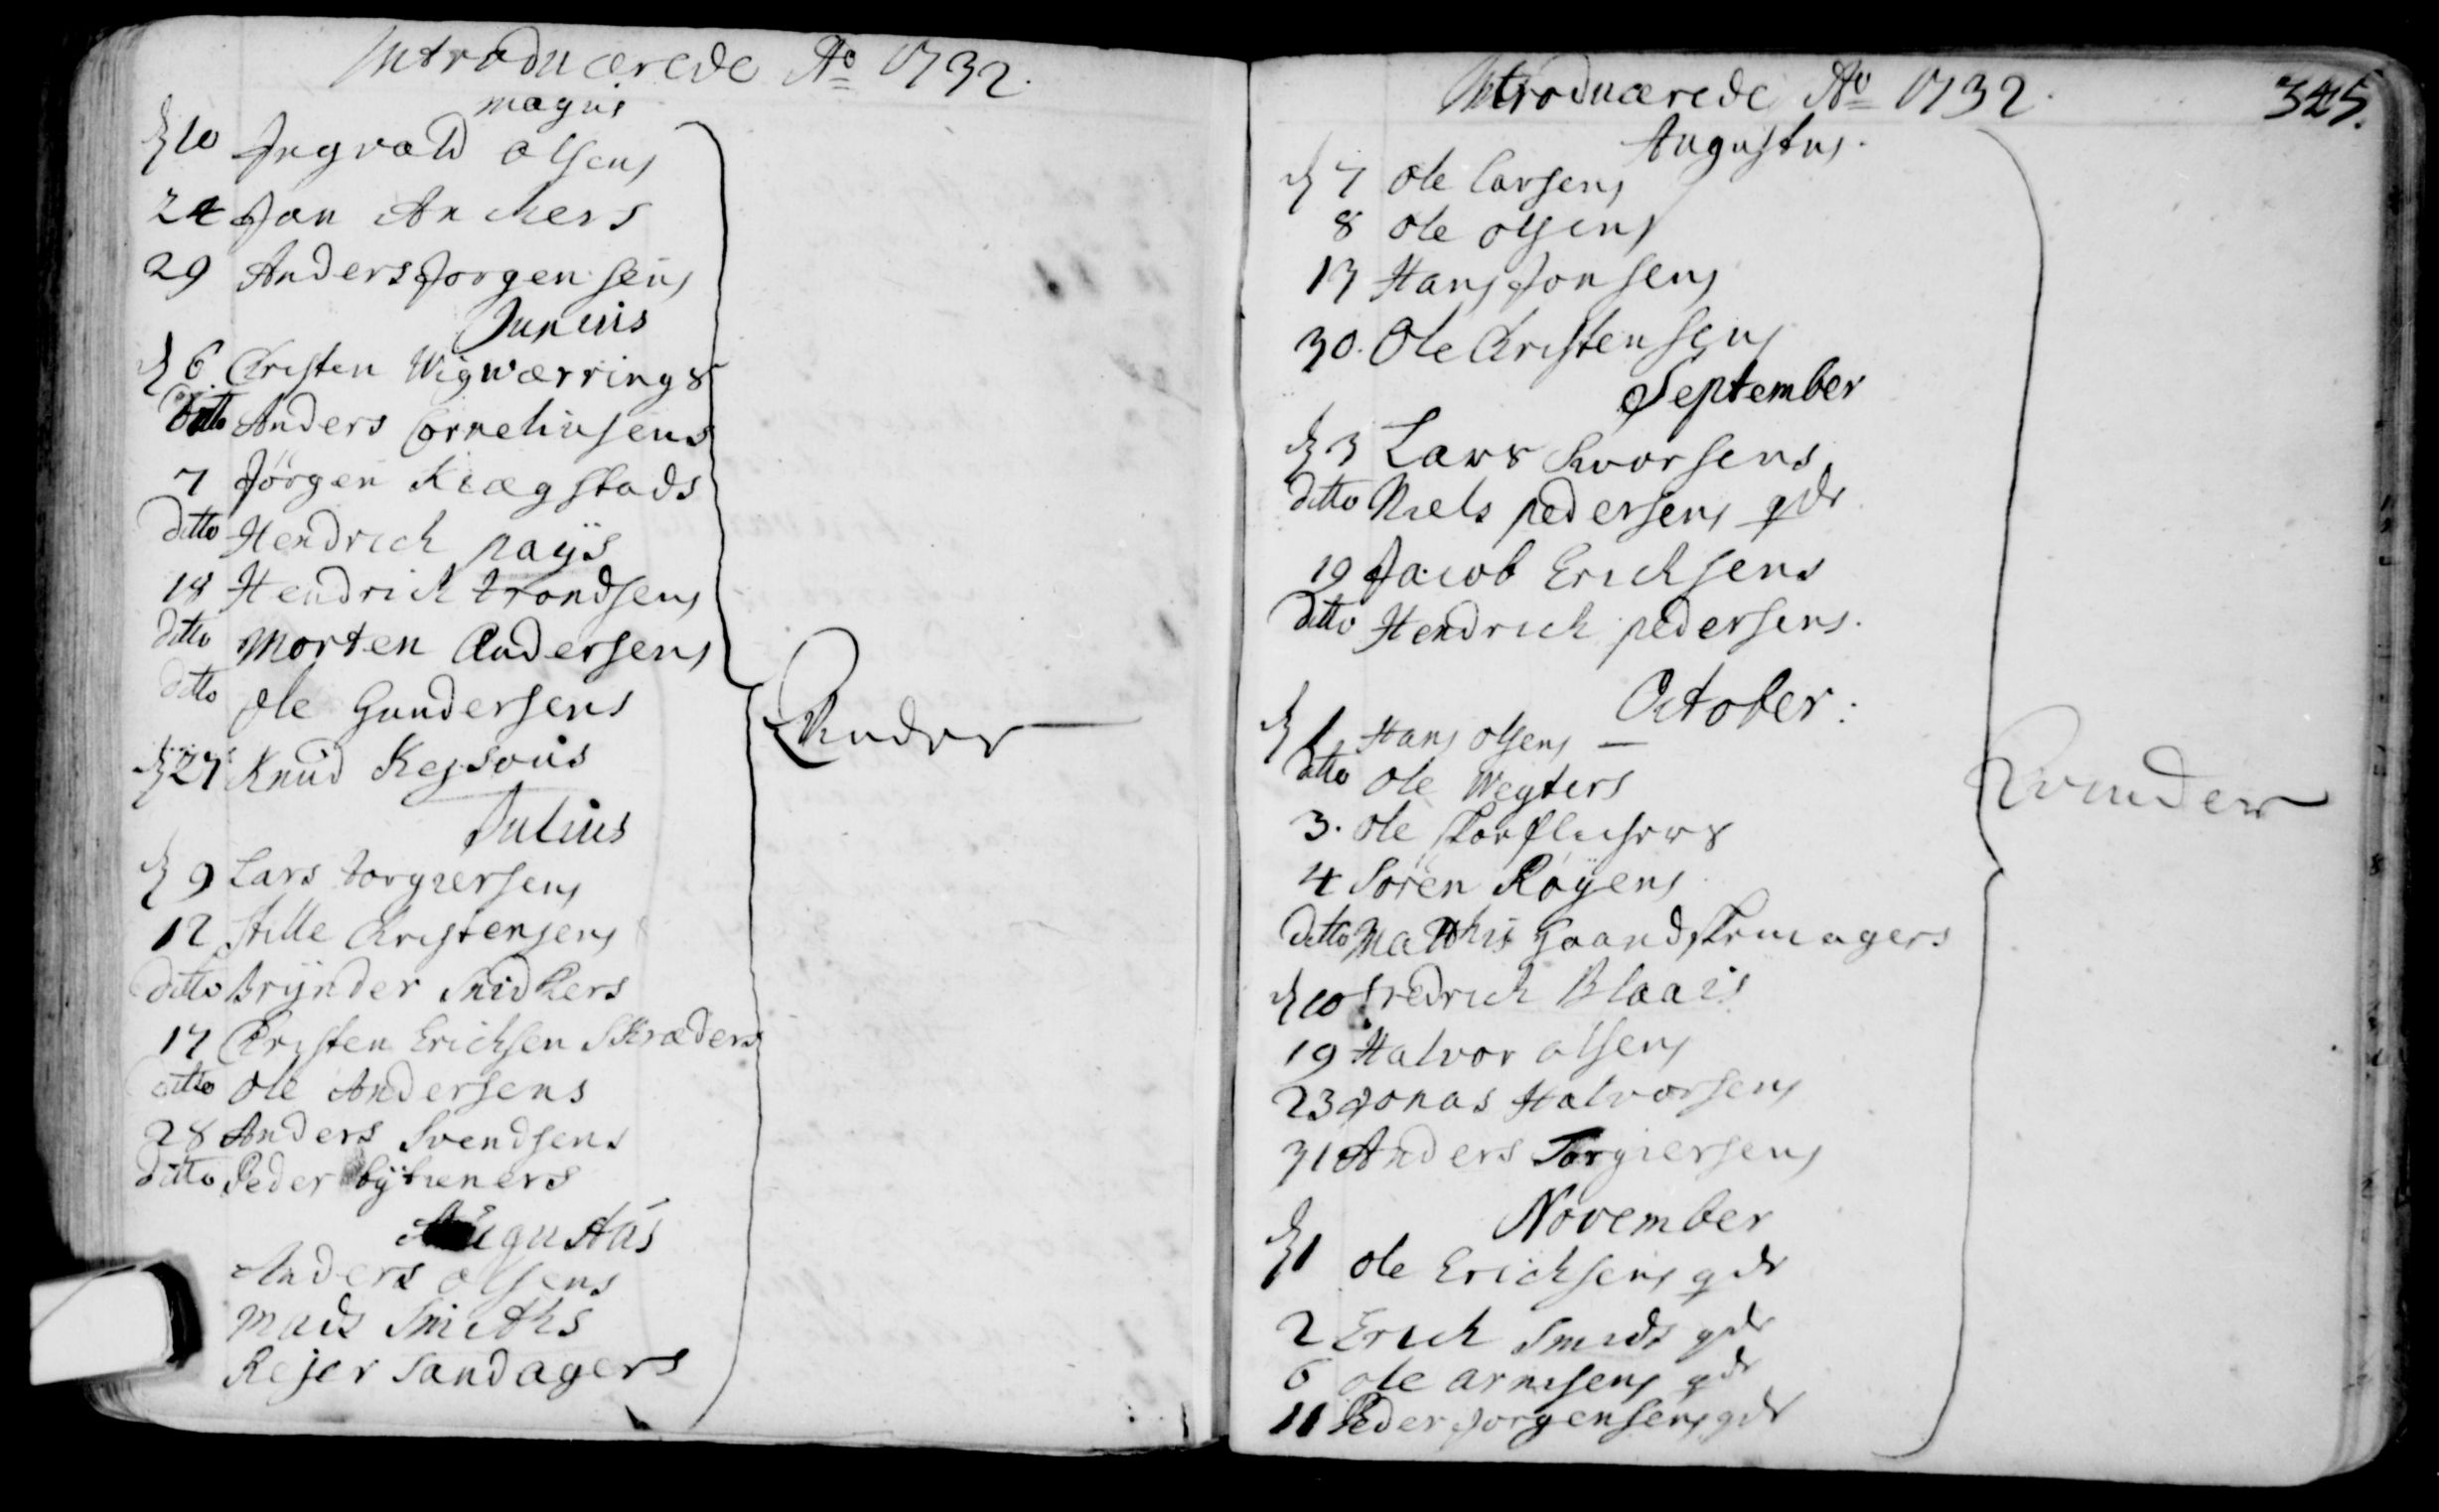 Introducerede Aº 1732.
Majus
d 10 Ingvald Olsens
24 Jan Anckers
29 Anders Jorgensens
Junius
d 6 Christen Wigwærrings
Ditto Anders Corneliusens
7 Jörgen Kiægstads
ditto Hendrich pays
18 Hendrich trondsens
ditto Morten Andersens
ditto Ole Gundersens
d 27 Knud
Julius
d 9 Lars torgiersens
12 Hille Christensens
ditto Brynder Snidkers
17 Christen Erichsen Skræders
ditto Ole Andersens
28 Anders Svendsens
ditto Peder
Augustus
Anders olsens
Mads Smiths
Rejer Sandagers
Qvinder
Introducerede Aº 1732.
345.
Augustus.
d 7 Ole Larsens
8 Ole olsens
13 Hans Jonsens
30. Ole Christensens
September
d 3 Lars Ivorsens
ditto Niels pedersens qdr
19 Jacob Erichsens
ditto Hendrich pedersens.
October:
d 1 Hans olsens —
ditto Ole Wegters
3. Ole
4 Sören Röyens
ditto Mathis Haandskemagers
d 10 Fredrich Blaais
19 Halvor olsens
23 Jonas Halvorsens
31 Anders Torgiersens
November
d 1 Ole Erichsens qdr
2 Erich Smids qdr
6 Ole arnesens qdr
11 Peder Jorgensens qdr
Qvinder